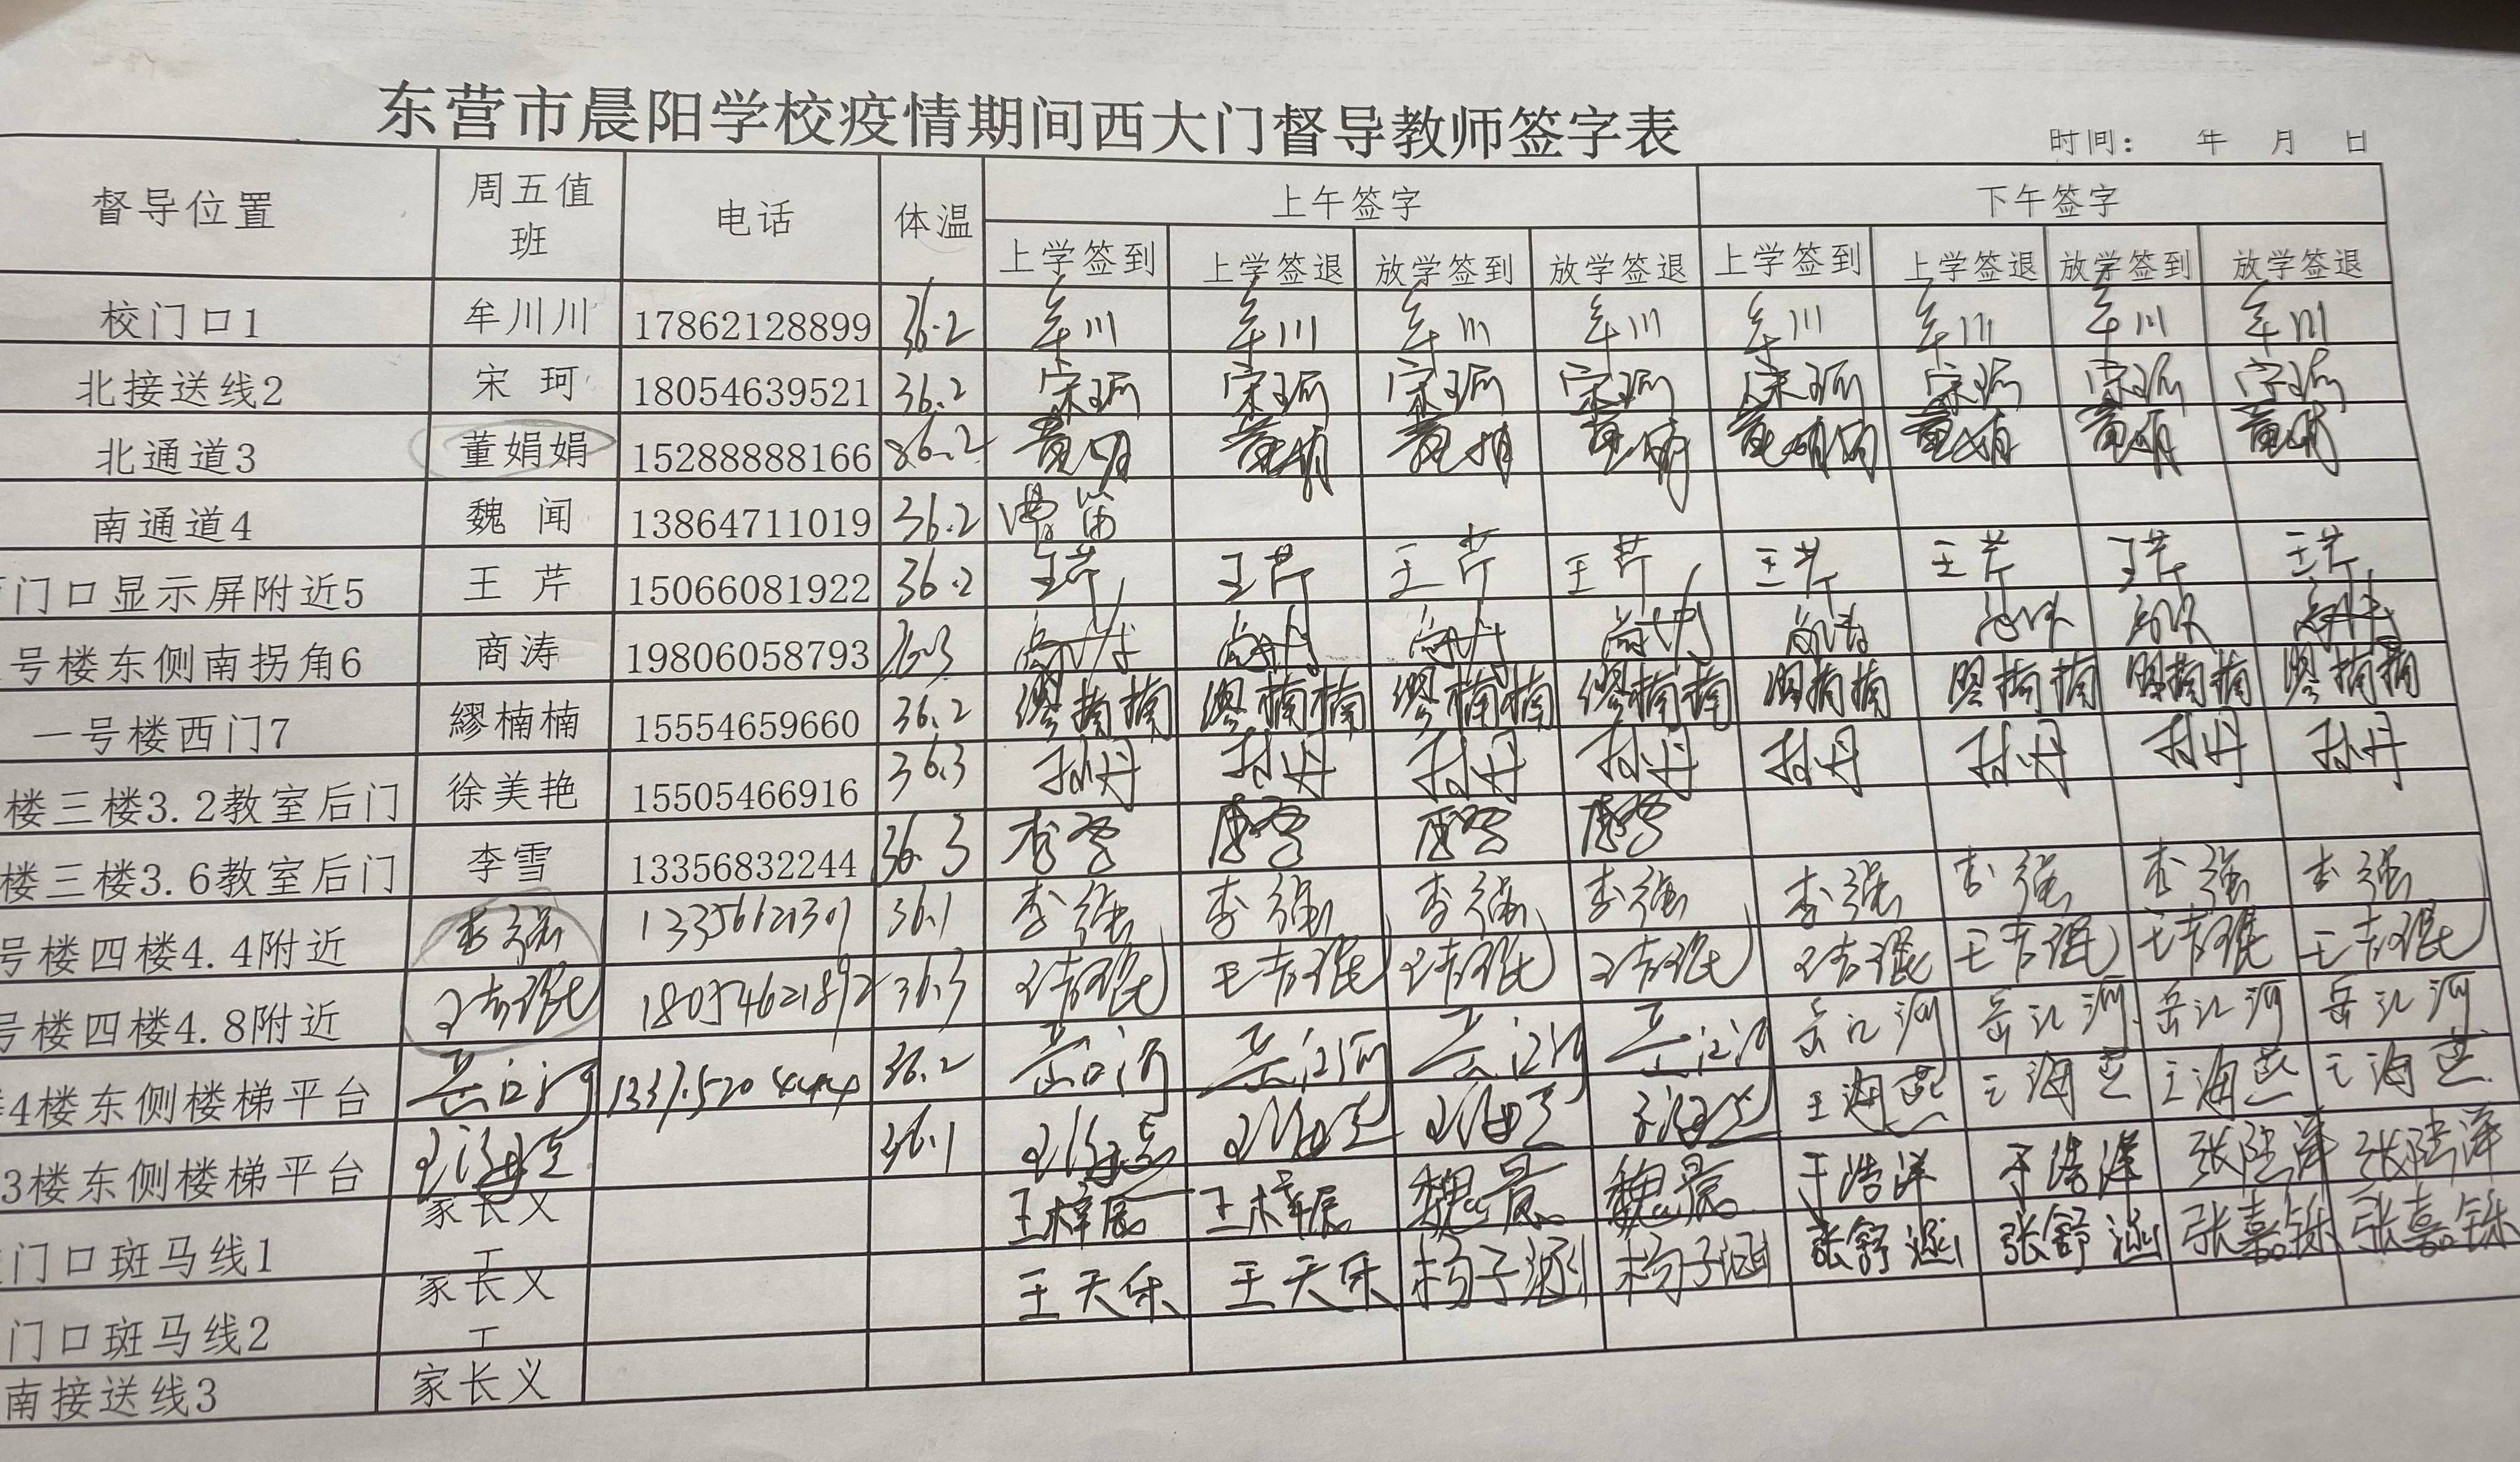 东营市晨阳学校疫情期间西大门督导教师签字表
时间： 年 月 日
督导位置 周五值班 电话 体温 上午签字 下午签字
上学签到 上学签退 放学签到 放学签退 上学签到 上学签退 放学签到 放学签退
校门口1 牟川川 17862128899 36.2 牟川 牟川 牟川 牟川 牟川 牟川 牟川 牟川
北接送线2 宋 珂 18054639521 36.2 宋珂 宋珂 宋珂 宋珂 宋珂 宋珂 宋珂 宋珂
北通道3 董娟娟 15288888166 36.2 董娟 董娟 董娟 董娟 董娟娟 董娟 董娟 董娟
南通道4 魏 闻 13864711019 36.2
门口显示屏附近5 王 芹 15066081922 36.2 王芹 王芹 王芹 王芹 王芹 王芹 王芹 王芹
号楼东侧南拐角6 商涛 19806058793 36.3 商涛 商涛 商涛 商涛 商涛 商涛 商涛 商涛
一号楼西门7 繆楠楠 15554659660 36.2 缪楠楠 缪楠楠 缪楠楠 缪楠楠 缪楠楠 缪楠楠 缪楠楠 缪楠楠
楼三楼3.2教室后门 徐美艳 15505466916 36.3 孙丹 孙丹 孙丹 孙丹 孙丹 孙丹 孙丹 孙丹
楼三楼3.6教室后门 李雪 13356832244 36.3 李雪
号楼四楼4.4附近 李强 13356621301 36.1 李强 李强 李强 李强 李强 李强 李强 李强
号楼四楼4.8附近 王志琨 18054621892 36.3 王志琨 王志琨 王志琨 王志琨 王志琨 王志琨 王志琨 王志琨
4楼东侧楼梯平台 岳江河 13375204444 36.2 岳江河 岳江河 岳江河 岳江河 岳江河 岳江河 岳江河 岳江河
3楼东侧楼梯平台 王海燕 36.1 王海燕 王海燕 王海燕 王海燕 王海燕 王海燕 王海燕 王海燕
门口斑马线1 家长义工 王梓宸 王梓宸 魏晨 魏晨 于浩洋 于浩洋 张陆洋 张陆洋
门口斑马线2 家长义工 王天乐 王天乐 杨子涵 杨子涵 张舒涵 张舒涵 张嘉铄 张嘉铄
南接送线3 家长义